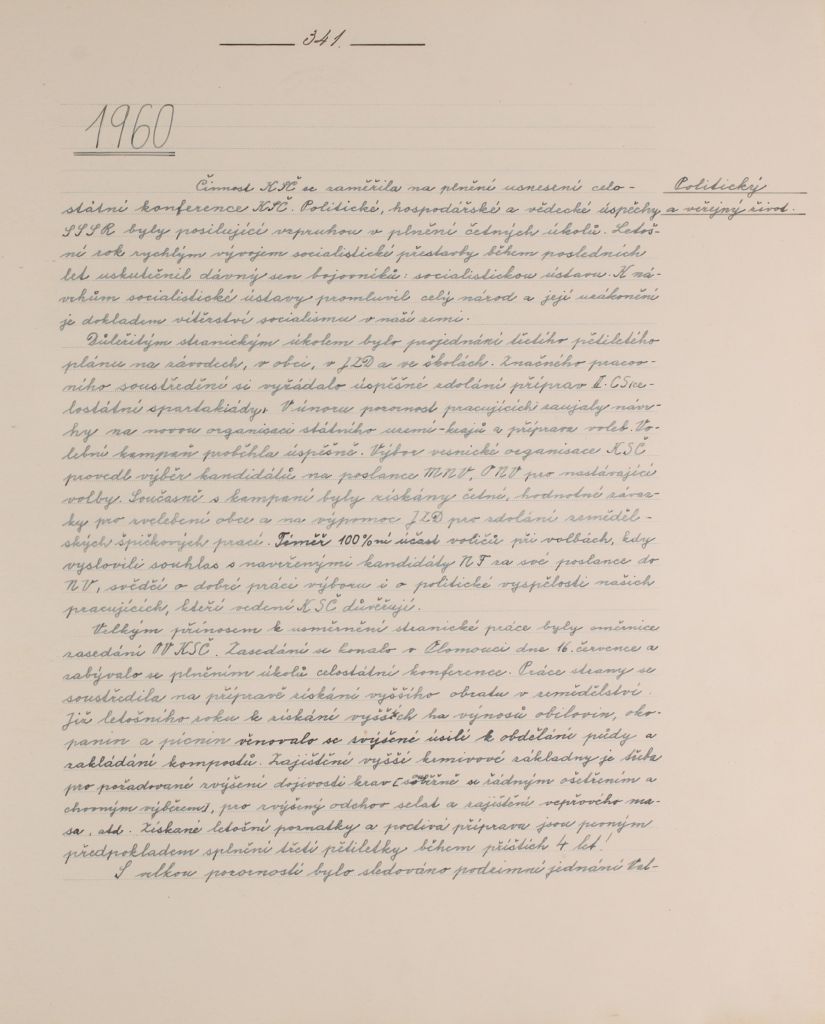 341.
1960
Činnost KSČ se zaměřila na plnění usnesení celo-
Politický
státní konference KSČ. Politické, hospodářské a vědecké úspěchy
a veřejný život.
SSSR byly posilující vzpruhou v plnění četných úkolů. Letoš-
ní rok rychlým vývojem socialistické přestavby během posledních
let uskutečnil dávný sen bojovníků: socialistickou ústavu. K ná-
vrhům socialistické ústavy promluvil celý národ a její uzákonění
je dokladem vítězství socialismu v naší zemi.
Důležitým stranickým úkolem bylo projednání třetího pětiletého
plánu na závodech, v obci, v JZD a ve školách. Značného pracov-
ního soustředění si vyžádalo úspěšné zdolání příprav II. CS/ce-
lostátní spartakiády. V únoru pozornost pracujících zaujaly návr-
hy na novou organisaci státního území-krajů a příprava voleb. Vo-
lební kampaň proběhla úspěšně. Výbor vesnické organisace KSČ
provedl výběr kandidátů na poslance MNV, ONV pro nastávající
volby. Současně s kampaní byly získány četné, hodnotné závaz-
ky pro zvelebení obce a na výpomoc JZD pro zdolání zeměděl-
ských špičkových prací. Téměř 100%ní účast voličů při volbách, kdy
vyslovili souhlas s navrženými kandidáty NF za své poslance do
NV, svědčí o dobré práci výboru i o politické vyspělosti našich
pracujících, kteří vedení KSČ důvěřují.
Velkým přínosem k usměrnění stranické práce byly směrnice
zasedání OV KSČ. Zasedání se konalo v Olomouci dne 16. července a
zabývalo se plněním úkolů celostátní konference. Práce strany se
soustředila na přípravě získání vyššího obratu v zemědělství.
Již letošního roku k získání vyšších ha výnosů obilovin, oko-
panin a pícnin věnovalo se zvýšené úsilí k obdělání půdy a
zakládání kompostů. Zajištění vyšší krmivové základny je třeba
pro požadované zvýšení dojivosti krav (souběžně se řádným ošetřením a
chovným výběrem), pro zvýšený odchov selat a zajištění vepřového ma-
sa, atd. Získané letošní poznatky a poctivá příprava jsou pevným
předpokladem splnění třetí pětiletky během příštích 4 let!
S velkou pozorností bylo sledováno podzimní jednání Val-